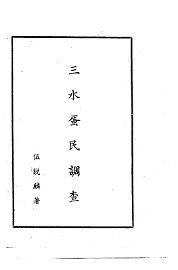 三水蛋民調查
伍銳麟著